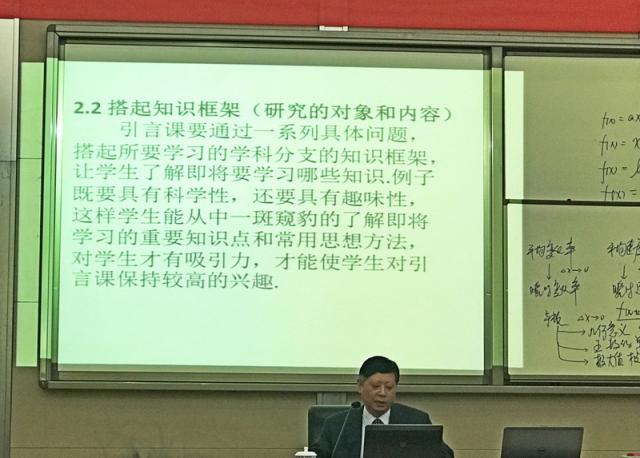 2.2 搭起知识框架（研究的对象和内容）
引言课要通过一系列具体问题，
搭起所要学习的学科分支的知识框架，
让学生了解即将要学习哪些知识.例子
既要具有科学性，还要具有趣味性，
这样学生能从中一斑窥豹的了解即将
学习的重要知识点和常用思想方法，
对学生才有吸引力，才能使学生对引
言课保持较高的兴趣.
f(x) = ax
f(x) = x
f(x) =
f(x) =
平均变化率
平均速度
↓ △x→0
瞬时变化率
导数
△x→0
几何意义